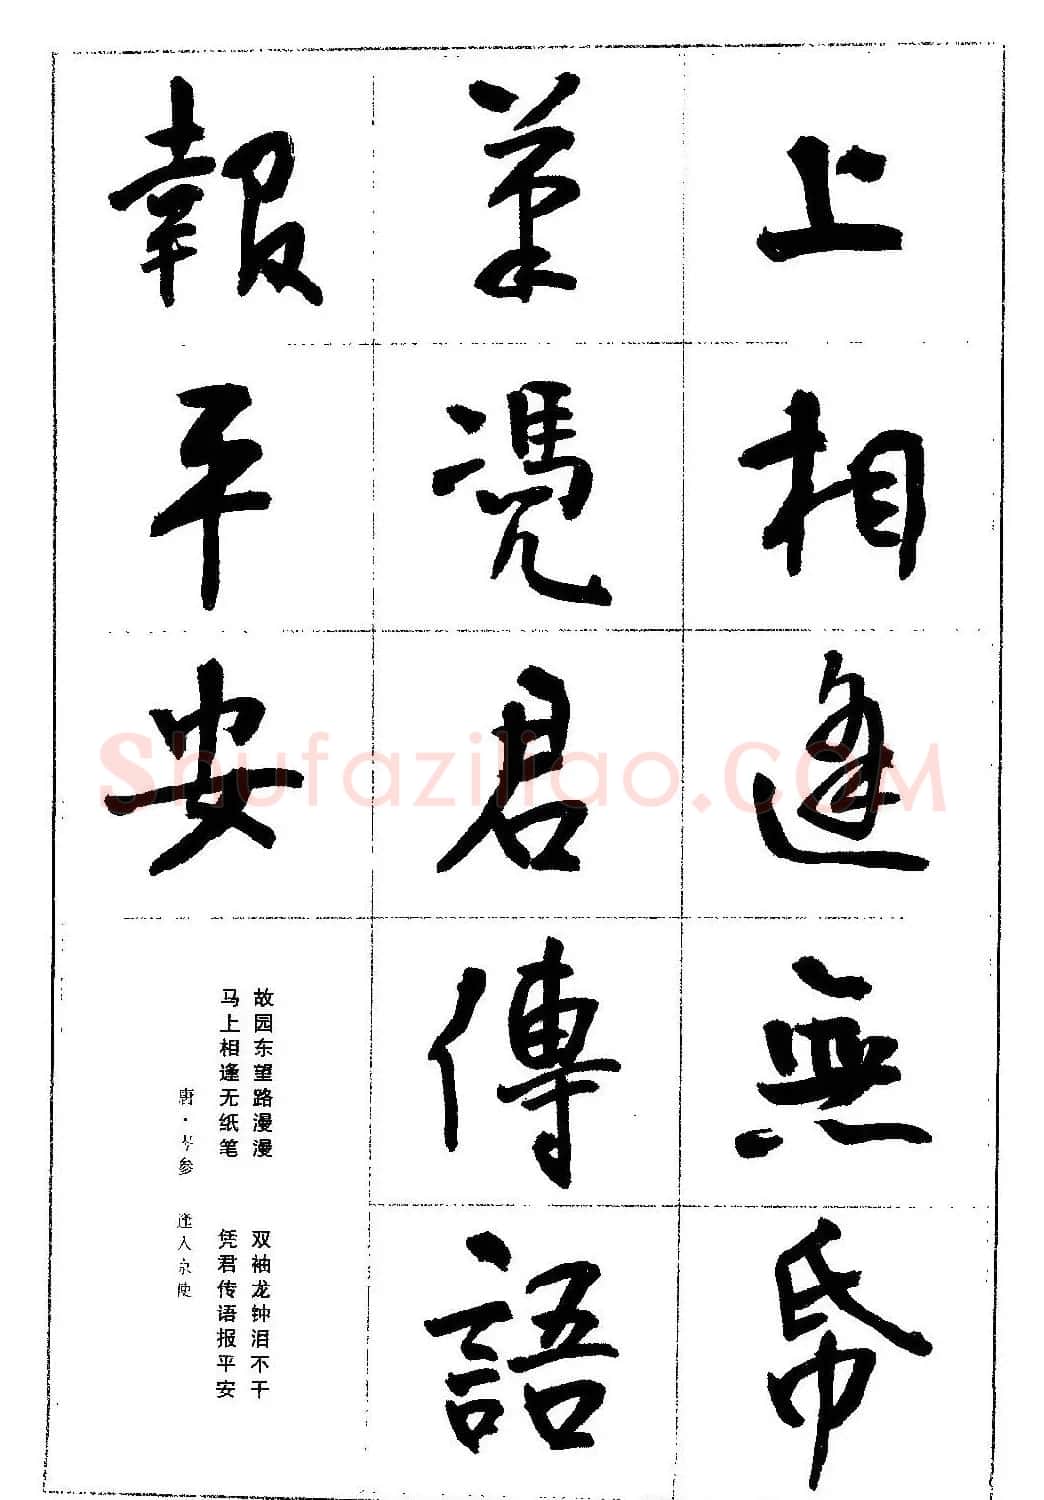 上相逢無帋
筆凴君傳語
報平安
故园东望路漫漫 双袖龙钟泪不干
马上相逢无纸笔 凭君传语报平安
唐·岑参 逢入京使
Shufaziliao.COM